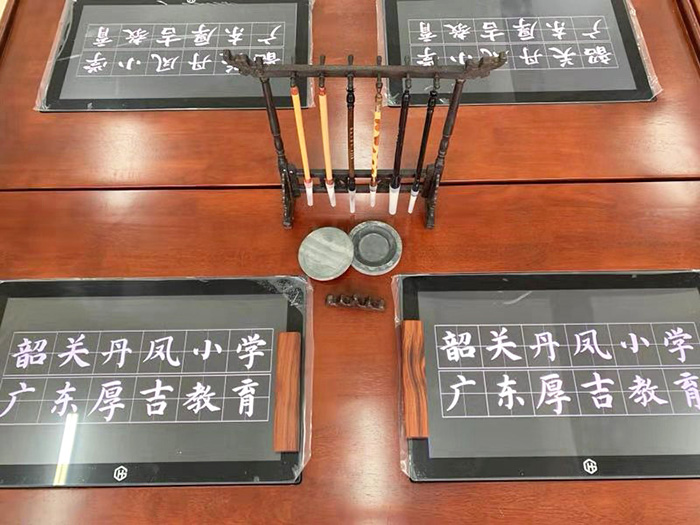 广东厚吉教育
韶关丹凤小学
广东厚吉教育
韶关丹凤小学
韶关丹凤小学
广东厚吉教育
韶关丹凤小学
广东厚吉教育